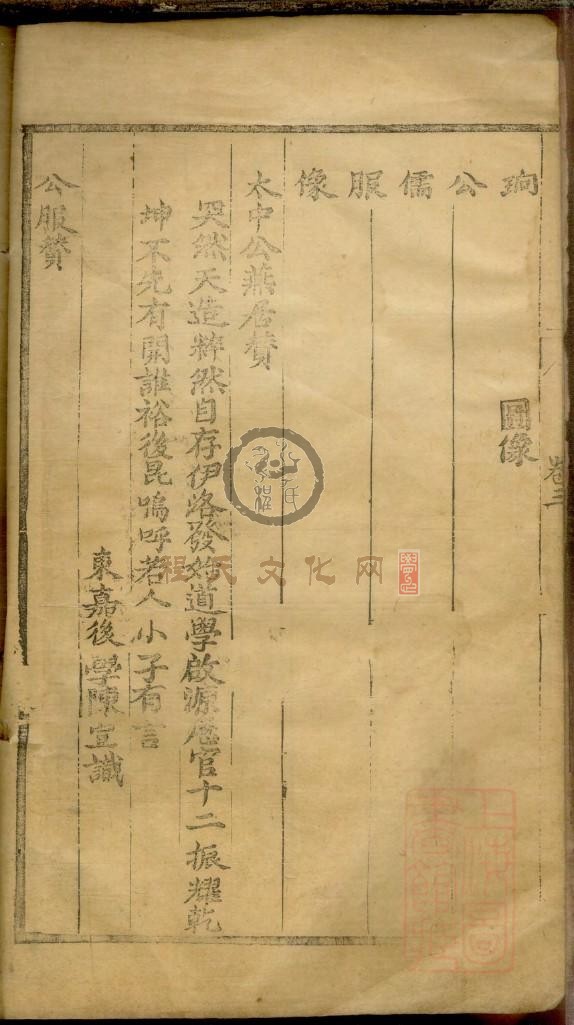 珦公儒服像
圖像
太中公燕居贊
然天造粹然自存伊洛發始道學啟源歷官十二振耀乾
坤不先有開誰裕後昆嗚呼若人小子有言
東嘉後學陳宣識
公服贊
卷三
程氏文化网
上海圖書館藏